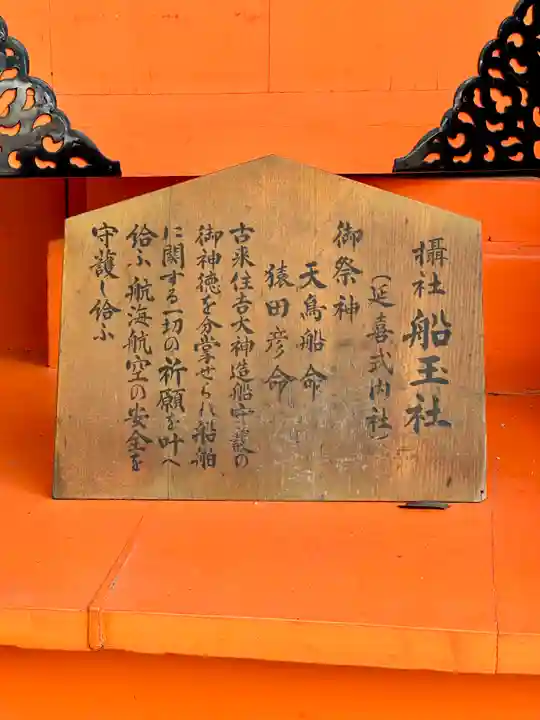 攝社 船玉社
(延喜式内社)
御祭神
天鳥船命
猿田彦命
古来住吉大神造船守護の
御神徳を分掌せられ船舶
に関する一切の祈願を叶へ
給ふ航海航空の安全を
守護し給ふ